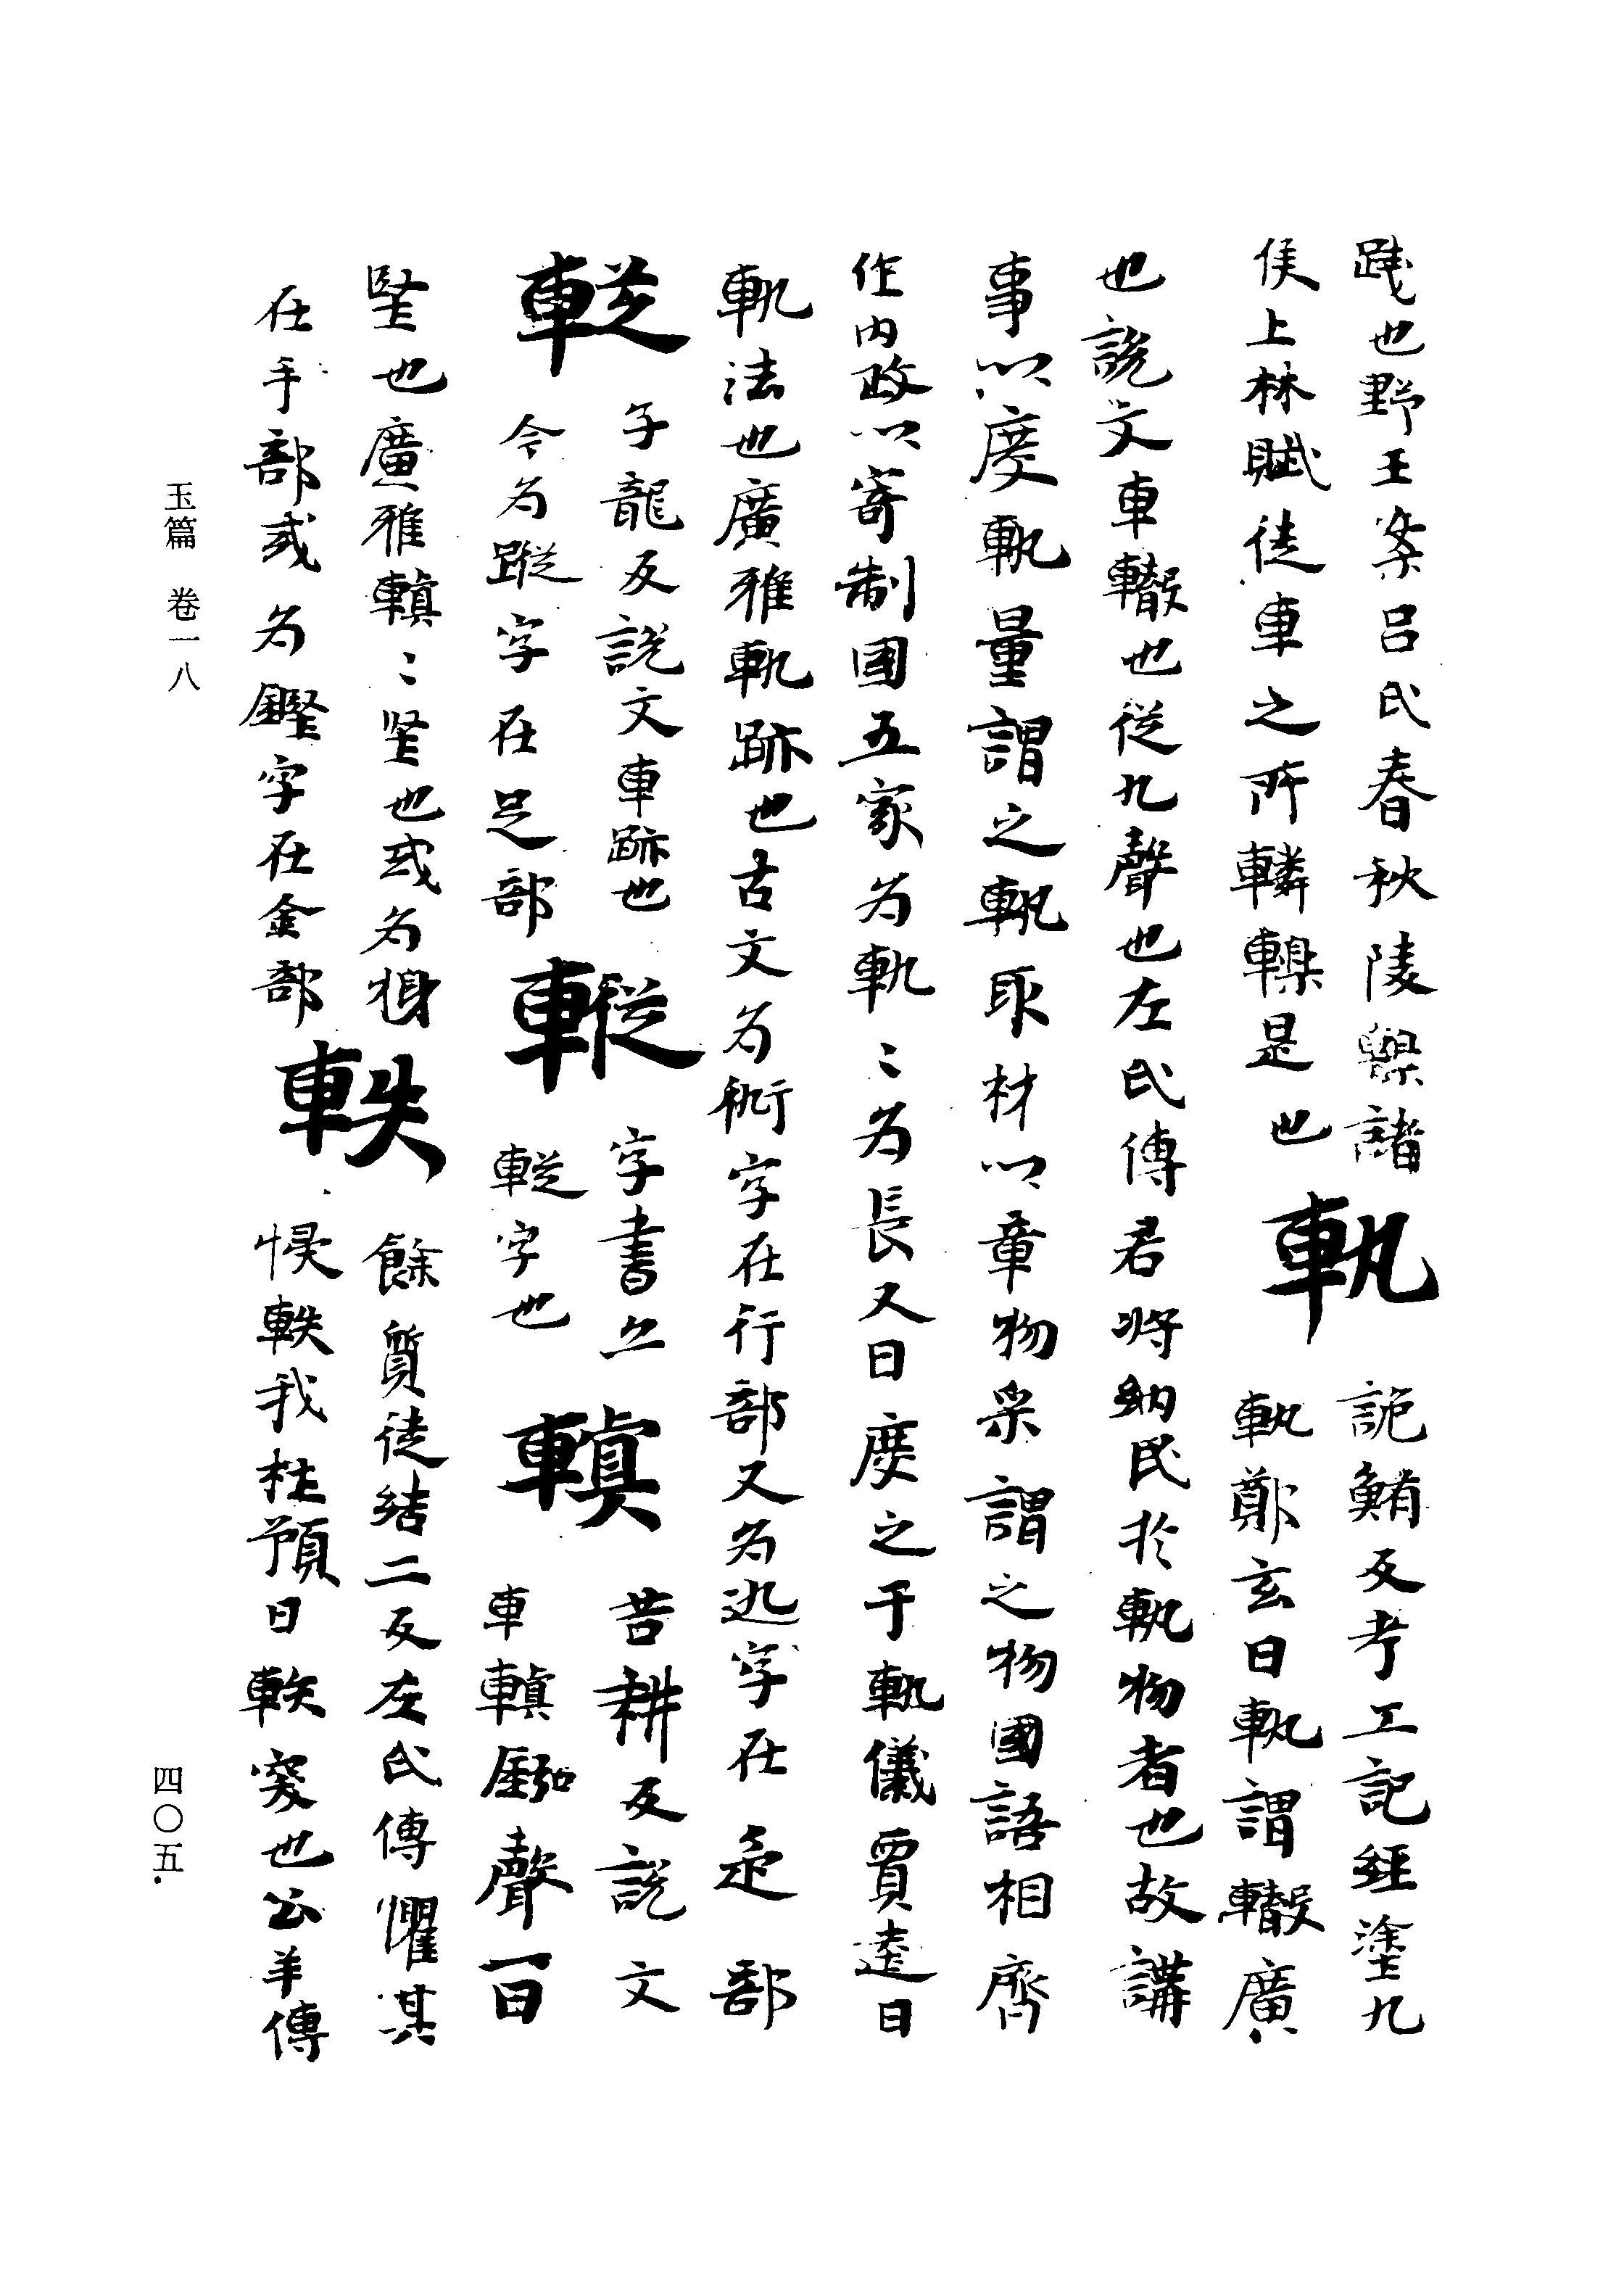 踐也野王案呂氏春秋陵轢諸
侯上林賦徒車之所轔轢是也
軌
詭鮪反考工記經塗九
軌鄭玄曰軌謂轍廣
也說文車轍也從九聲也左氏傳君將納民於軌物者也故講
事以度軌量謂之軌取材以章物采謂之物國語相齊
作內政以寄制國五家為軌〻為長又曰度之于軌儀賈逵曰
軌法也廣雅軌跡也古文為衐字在行部又為迿字在辵部
䡮
子龍反說文車跡也
今為蹤字在足部
轍
字書亦
䡮字也
轒
苦耕反說文
車轒䡰聲一曰
堅也廣雅轒〻堅也或為㨟
在手部或為鏗字在金部
軼
餘質徒結二反左氏傳懼其
侵軼我杜預曰軼突也公羊傳
玉篇 卷一八
四〇五